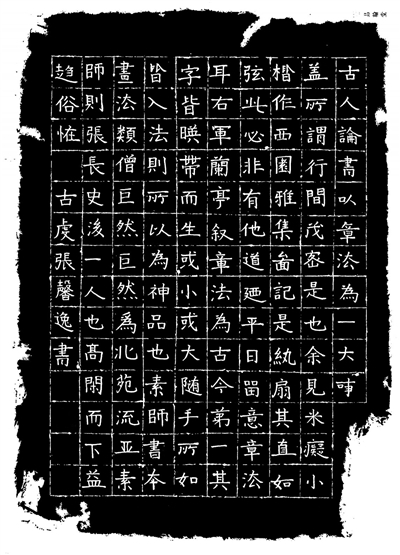 古人論書以章法為一大事
蓋所謂行間茂密是也余見米癡小
楷作西園雅集啚記是紈扇其直如
弦此必非有他道廼平日畱意章法
耳右軍蘭亭叙章法為古今第一其
字皆暎帶而生或小或大隨手所如
皆入法則所以為神品也素師書本
畫法類僧巨然巨然為北苑流亚素
師則張長史後一人也高閑而下益
趋俗恠
古虔張馨逸書